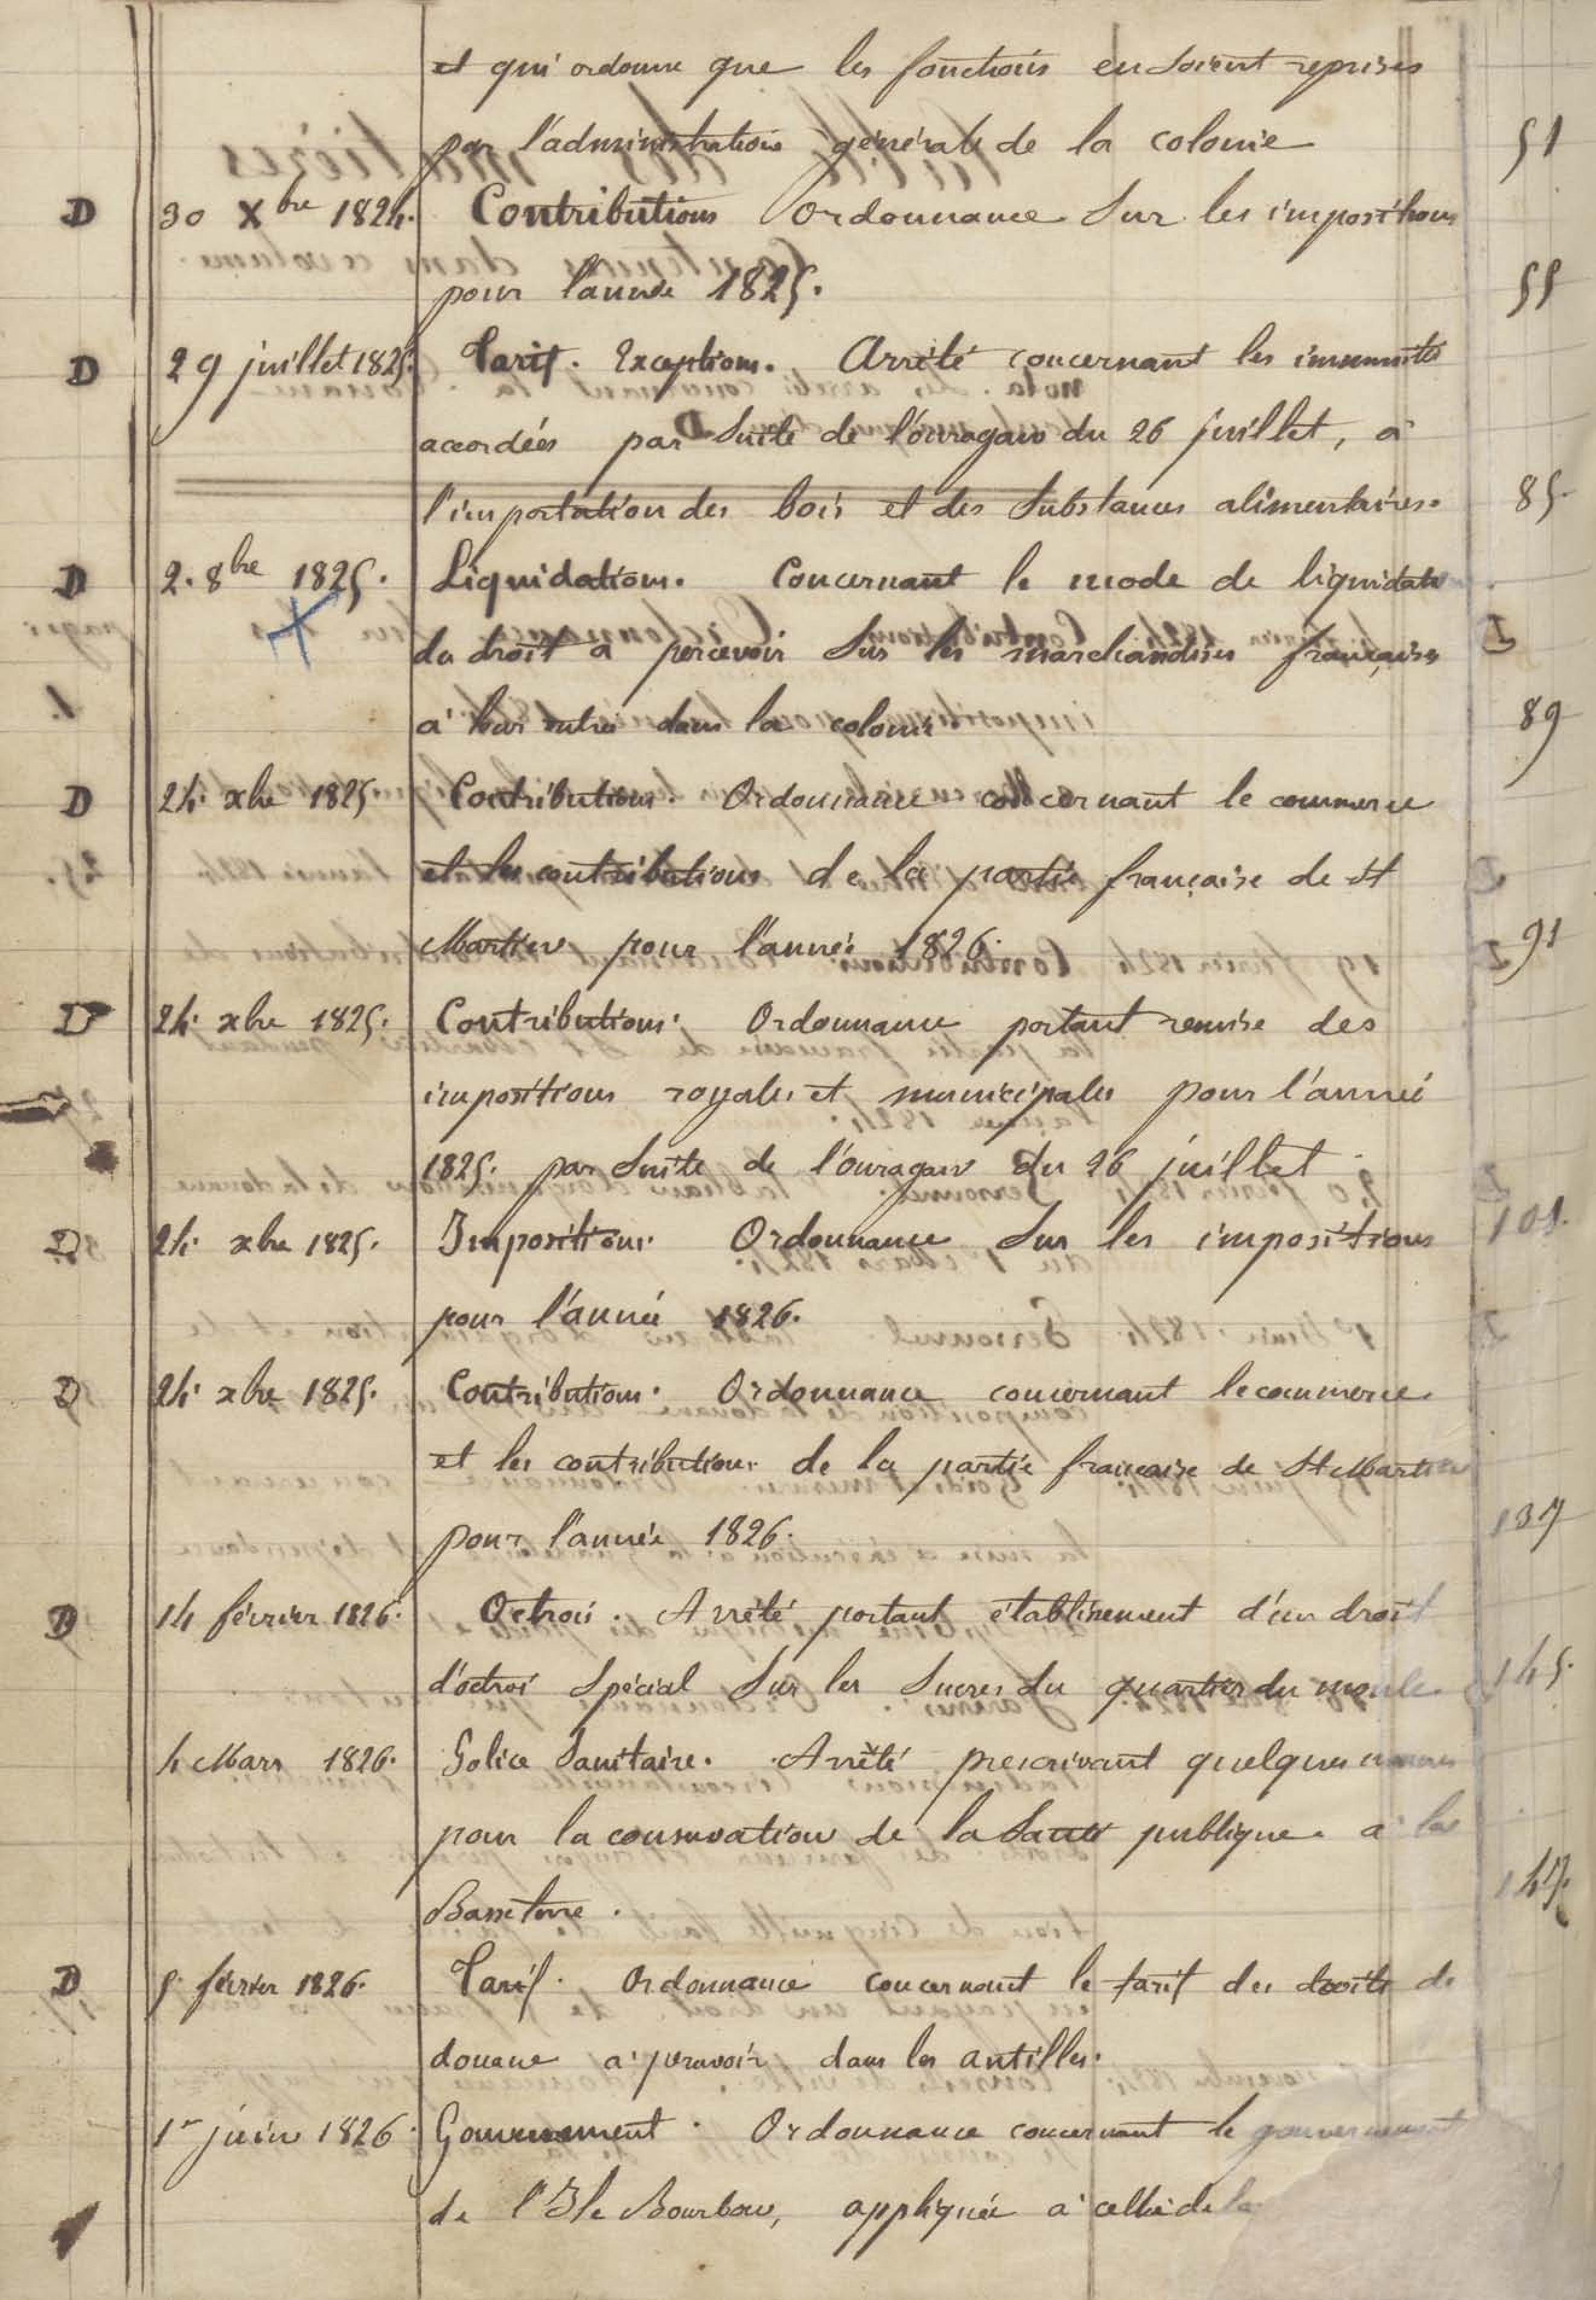 et qui ordonne que les fonctions en soient reprises
par l'administration générale de la colonie 51
D 30 Xbre 1824. Contributions Ordonnance sur les impositions
pour l'année 1825. 55
D 29 juillet 1825. Tarif. Exceptions. Arrêté concernant les immunités
accordées par suite de l'ouragan du 26 juillet, à
l'importation des bois et des substances alimentaires. 85.
D 2. 8bre 1825. Liquidations. Concernant le mode de liquidat
du droit à percevoir sur les marchandises françaises
à leur entrée dans la colonie 89
D 24. xbre 1825. Contributions. Ordonnance concernant le commerce
et les contributions de la partie française de St
Martin pour l'année 1826. 91
D 24. xbre 1825. Contributions. Ordonnance portant remise des
impositions royales et municipales pour l'année
1825. par suite de l'ouragan du 26 juillet.
D 24. xbre 1825. Impositions. Ordonnance sur les impositions 101.
pour l'année 1826.
D 24. xbre 1825. Contributions. Ordonnance concernant le commerce
et les contributions de la partie française de St Martin
pour l'année 1826. 137
D 14 février 1826. Octroi. Arrêté portant établissement d'un droit
d'octroi spécial sur les sucres du quartier du moule 145.
4 Mars 1826. Police Sanitaire. Arrêté prescrivant quelques mesures
pour la conservation de la santé publique à la
Basseterre. 147.
D 5. février 1826. Tarif. Ordonnance concernant le tarif des droits de
douane à percevoir dans les antilles.
1er juin 1826. Gouvernement. Ordonnance concernant le gouvernement
de l'Ile Bourbon, appliquée à celle de la